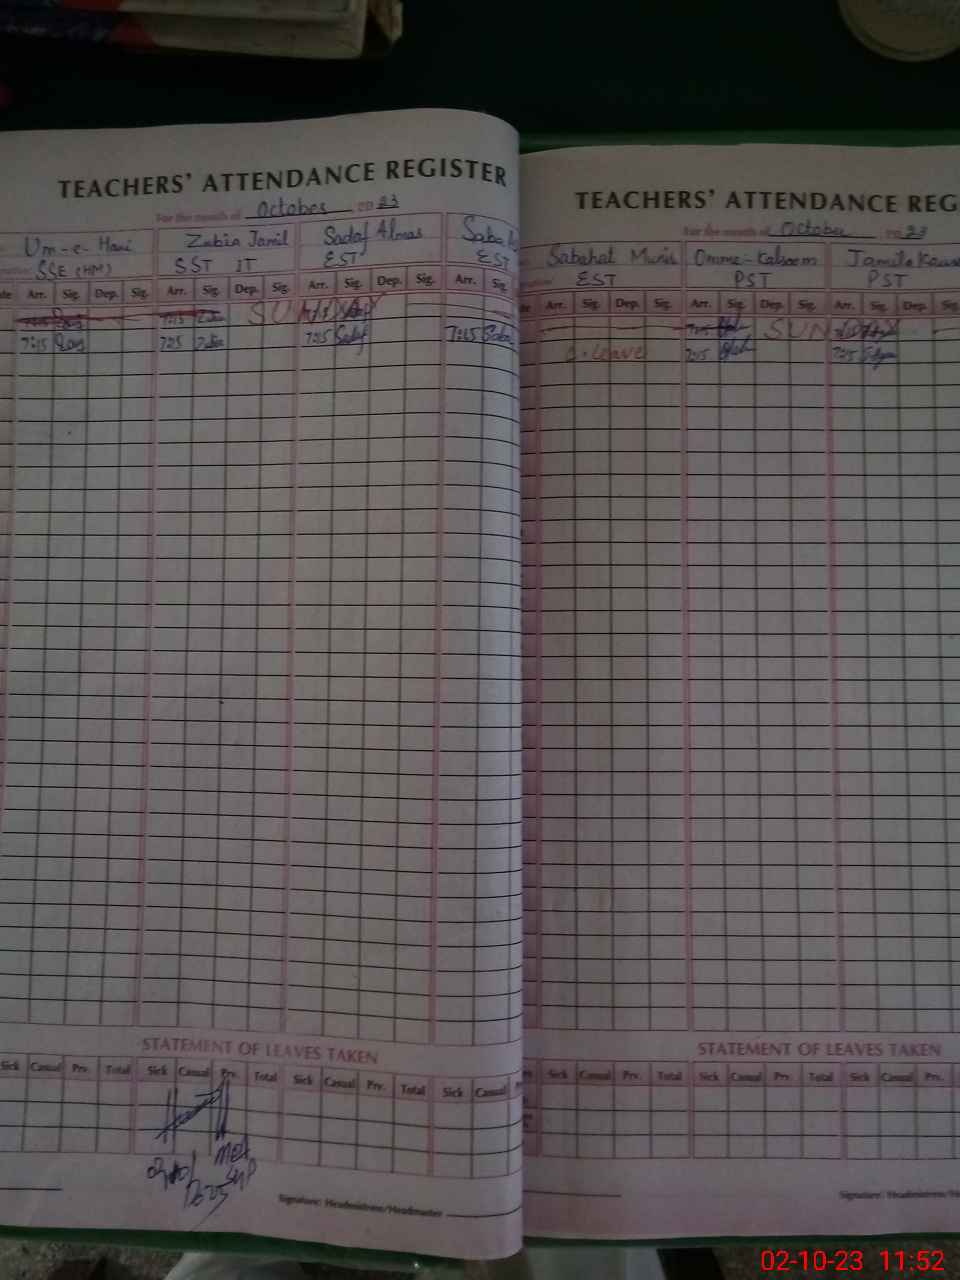 TEACHERS' ATTENDANCE REGISTER
For the month of October 20 23
Um-e-Hani Zubia Jamil Sadaf Almas Saba
SSE (HM) SST IT EST EST
Arr. Sig. Dep. Sig. Arr. Sig. Dep. Sig. Arr. Sig. Dep. Sig. Arr. Sig.
7:15 7:15 SUN
7:15 7:15 Zubia 7:25 Sadaf 7:15 Saba
STATEMENT OF LEAVES TAKEN
Sick Casual Prv. Total Sick Casual Prv. Total Sick Casual Prv. Total Sick Casual
Signature: Headmistress/Headmaster
TEACHERS' ATTENDANCE REG
For the month of October 20 23
Sabahat Munir Omme-Kalsoom Jamila Kaus
EST PST PST
Arr. Sig. Dep. Sig. Arr. Sig. Dep. Sig. Arr. Sig. Dep.
7:15 SUN
C. Leave 7:15 7:25
STATEMENT OF LEAVES TAKEN
Sick Casual Prv. Total Sick Casual Prv. Total Sick Casual Prv.
Signature: Headmistress/H
02-10-23 11:52